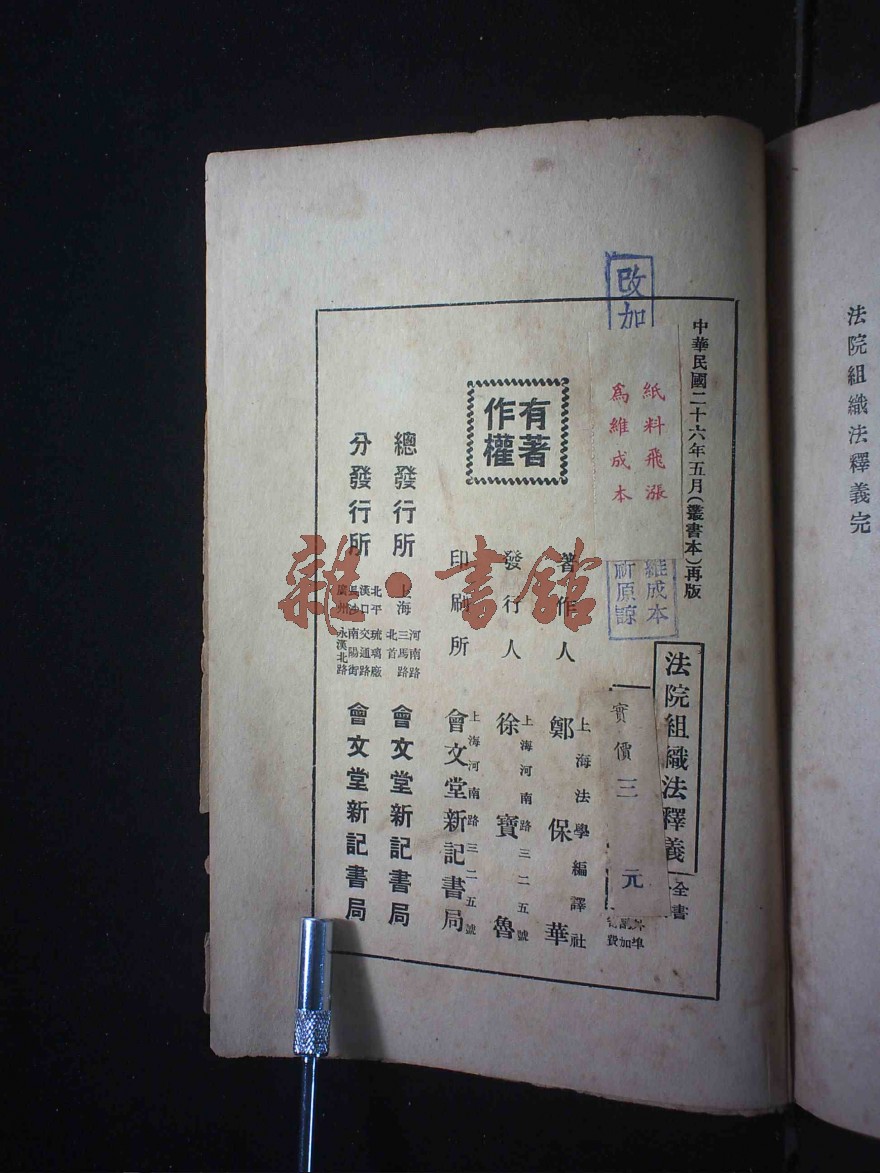 法院組織法釋義完
中華民國二十六年五月(叢書本)再版
改加
紙料飛漲
爲維成本
維成本
祈原諒
法院組織法釋義
全書
實價三元
有著
作權
著作人 上海法學編譯社
鄭保華
發行人 上海河南路三二五號
徐寶魯
印刷所 上海河南路三二五號
會文堂新記書局
總發行所 上海 河南路 三馬路 北首 會文堂新記書局
分發行所 北平 琉璃廠 漢口 交通路 長沙 南陽街 廣州 永漢北路 會文堂新記書局
雜·書館